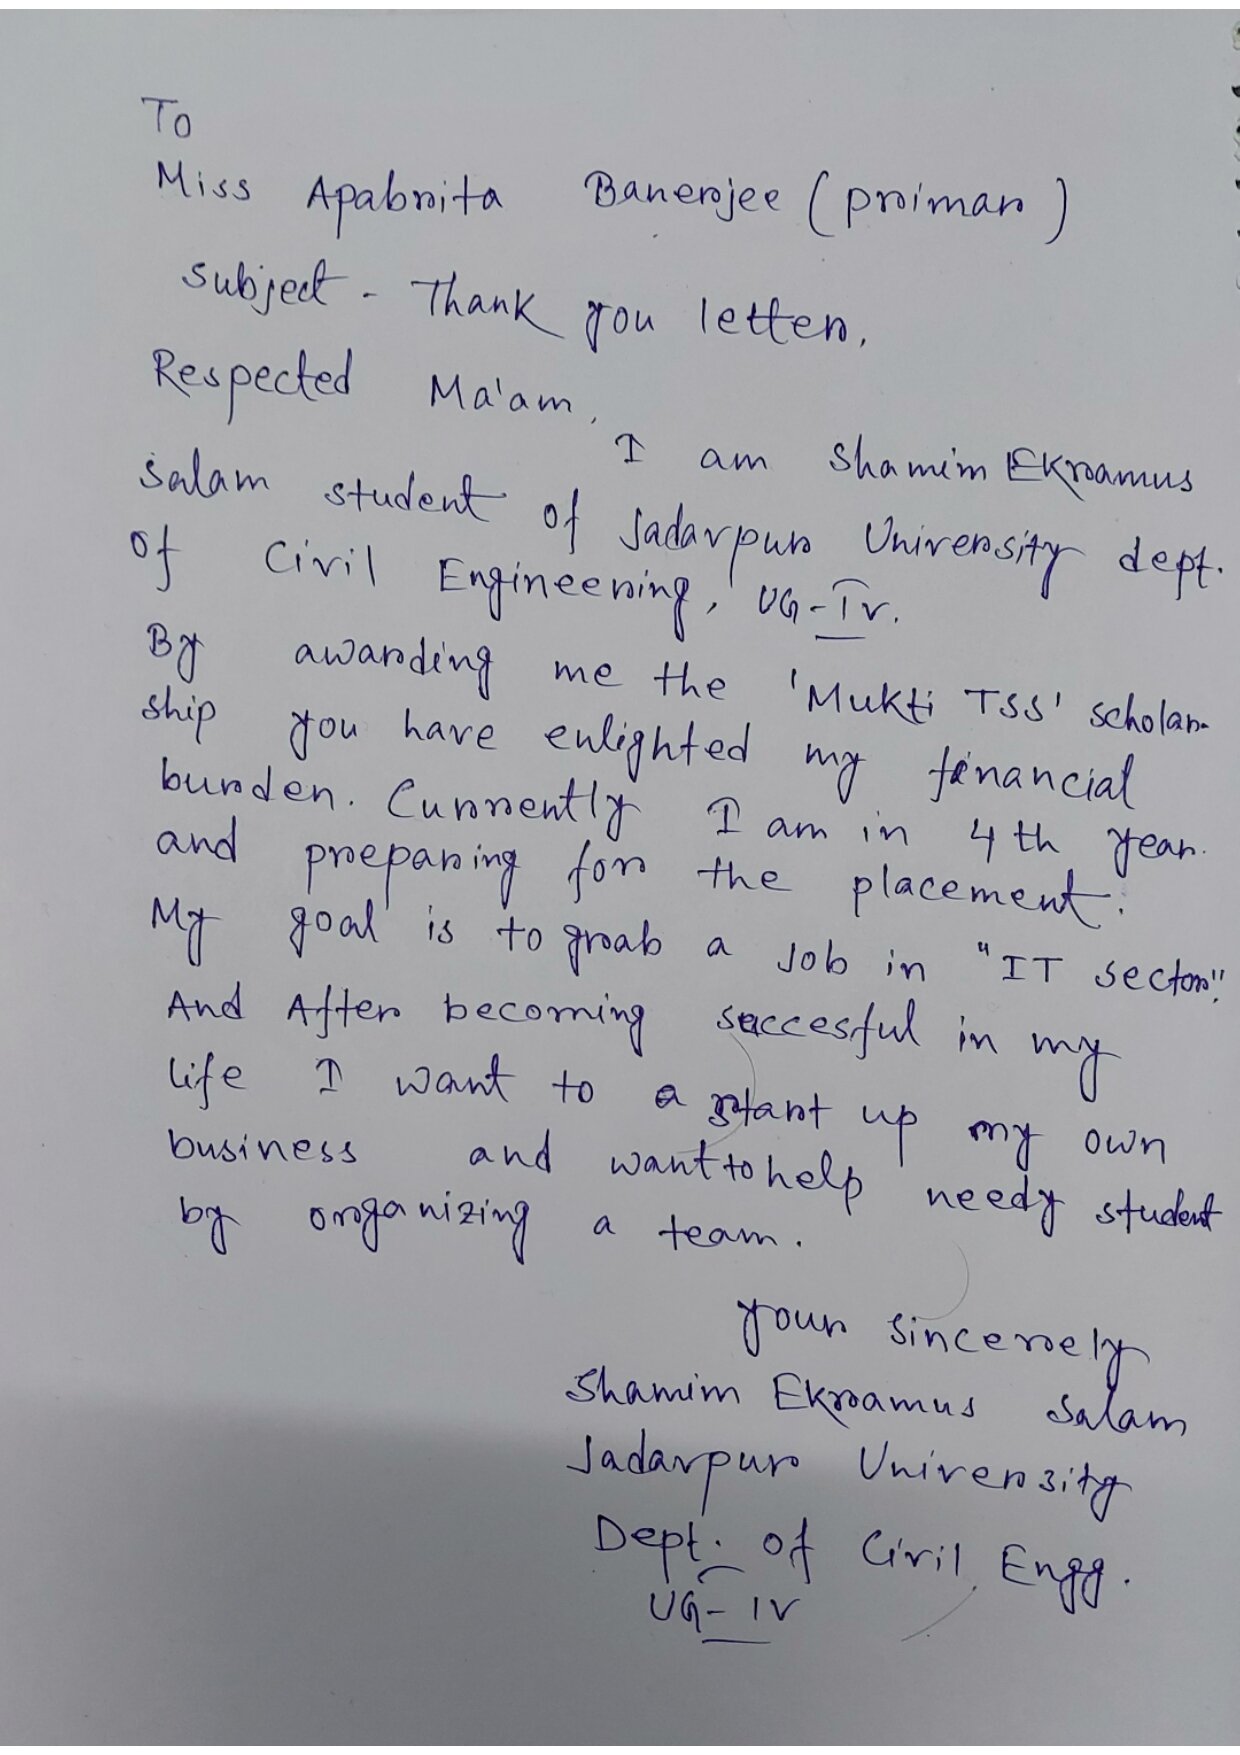 To
Miss Apabrita Banerjee (priman)
Subject - Thank you letter.
Respected Ma'am,
I am Shamim Ekramus
Salam student of Jadavpur University dept.
of Civil Engineering, UG-IV.
By awarding me the 'Mukti TSS' scholar-
ship you have enlighted my financial
burden. Currently I am in 4th year.
and preparing for the placement.
My goal is to grab a Job in "IT sector".
And After becoming succesful in my
life I want to a start up my own
business and want to help needy student
by organizing a team.
your sincerely
Shamim Ekramus Salam
Jadavpur University
Dept. of Civil Engg.
UG-IV